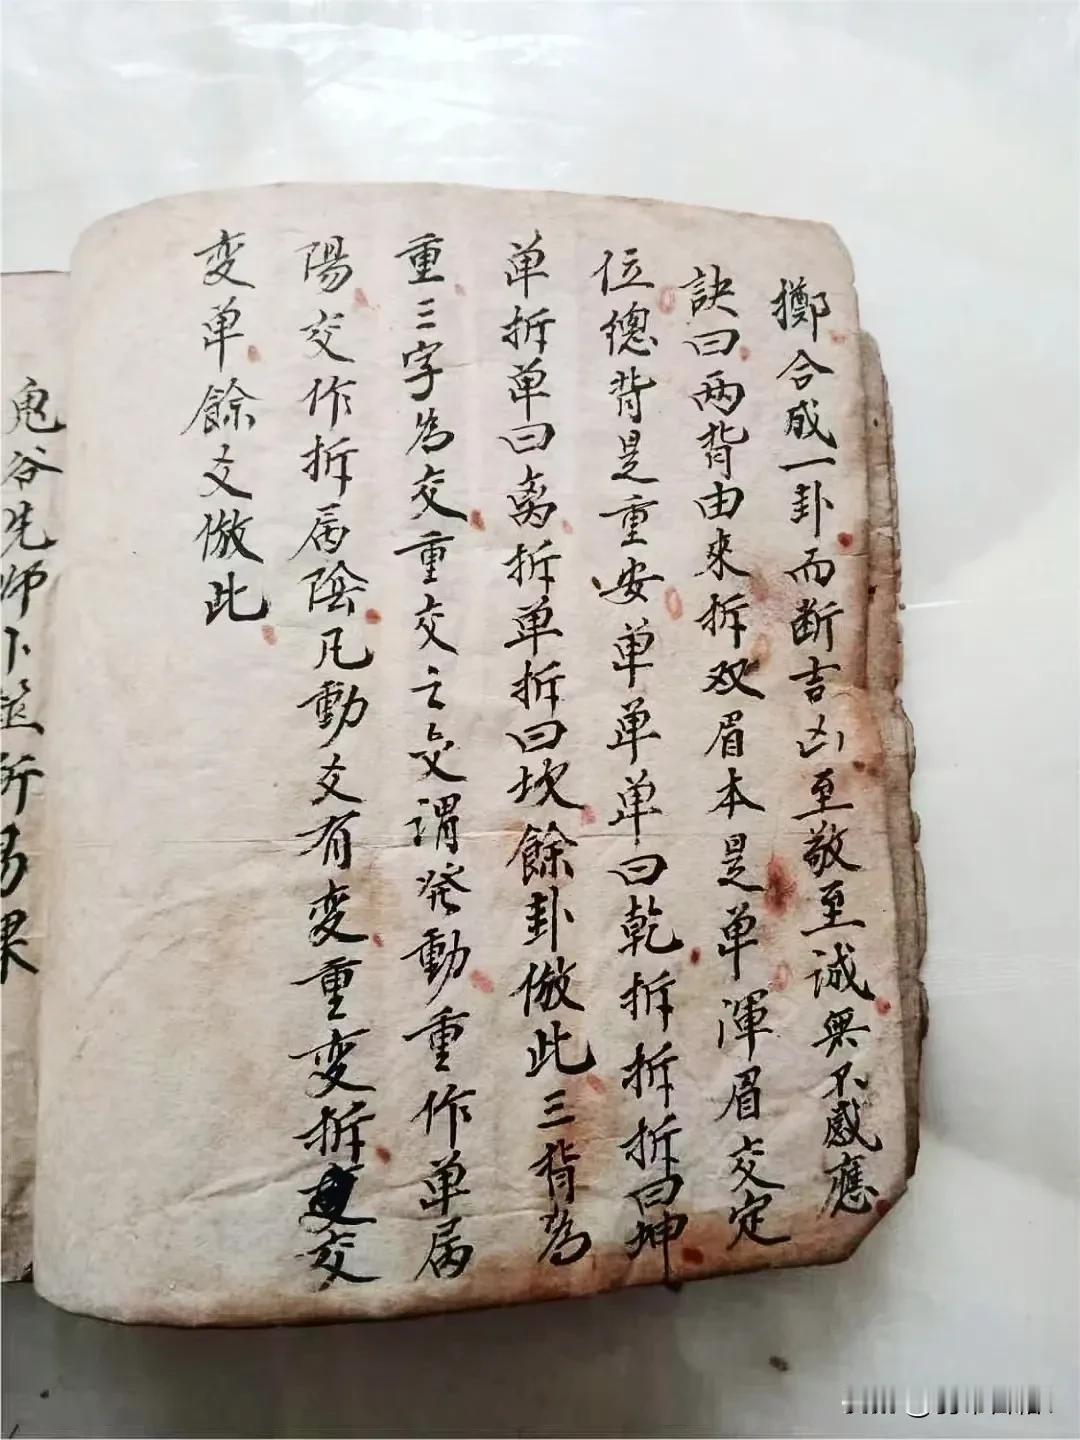 擲合成一卦而断吉凶至敬至诚無不感應
訣曰两背由來拆双眉本是单渾眉交定
位總背是重安单单单曰乾拆拆拆曰坤
单拆单曰离拆单拆曰坎餘卦倣此三背為
重三字為交重交之交谓発動重作单属
陽交作拆属陰凡動爻有変重変拆交
変单餘爻倣此
鬼谷先师卜筮所易課